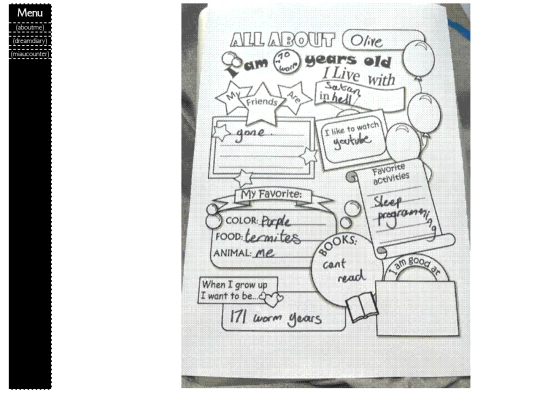 Menu
(aboutme)
(dreamdiary)
(miaucounter)
ALL ABOUT Olive
I am 170 worm years old
I Live with
Satan
in hell
My Friends Are
gone
I like to watch
youtube
Favorite
activities
Sleep
programming
My Favorite:
COLOR: Purple
FOOD: termites
ANIMAL: me
BOOKS:
cant
read
I am good at
When I grow up
I want to be...
171 worm years